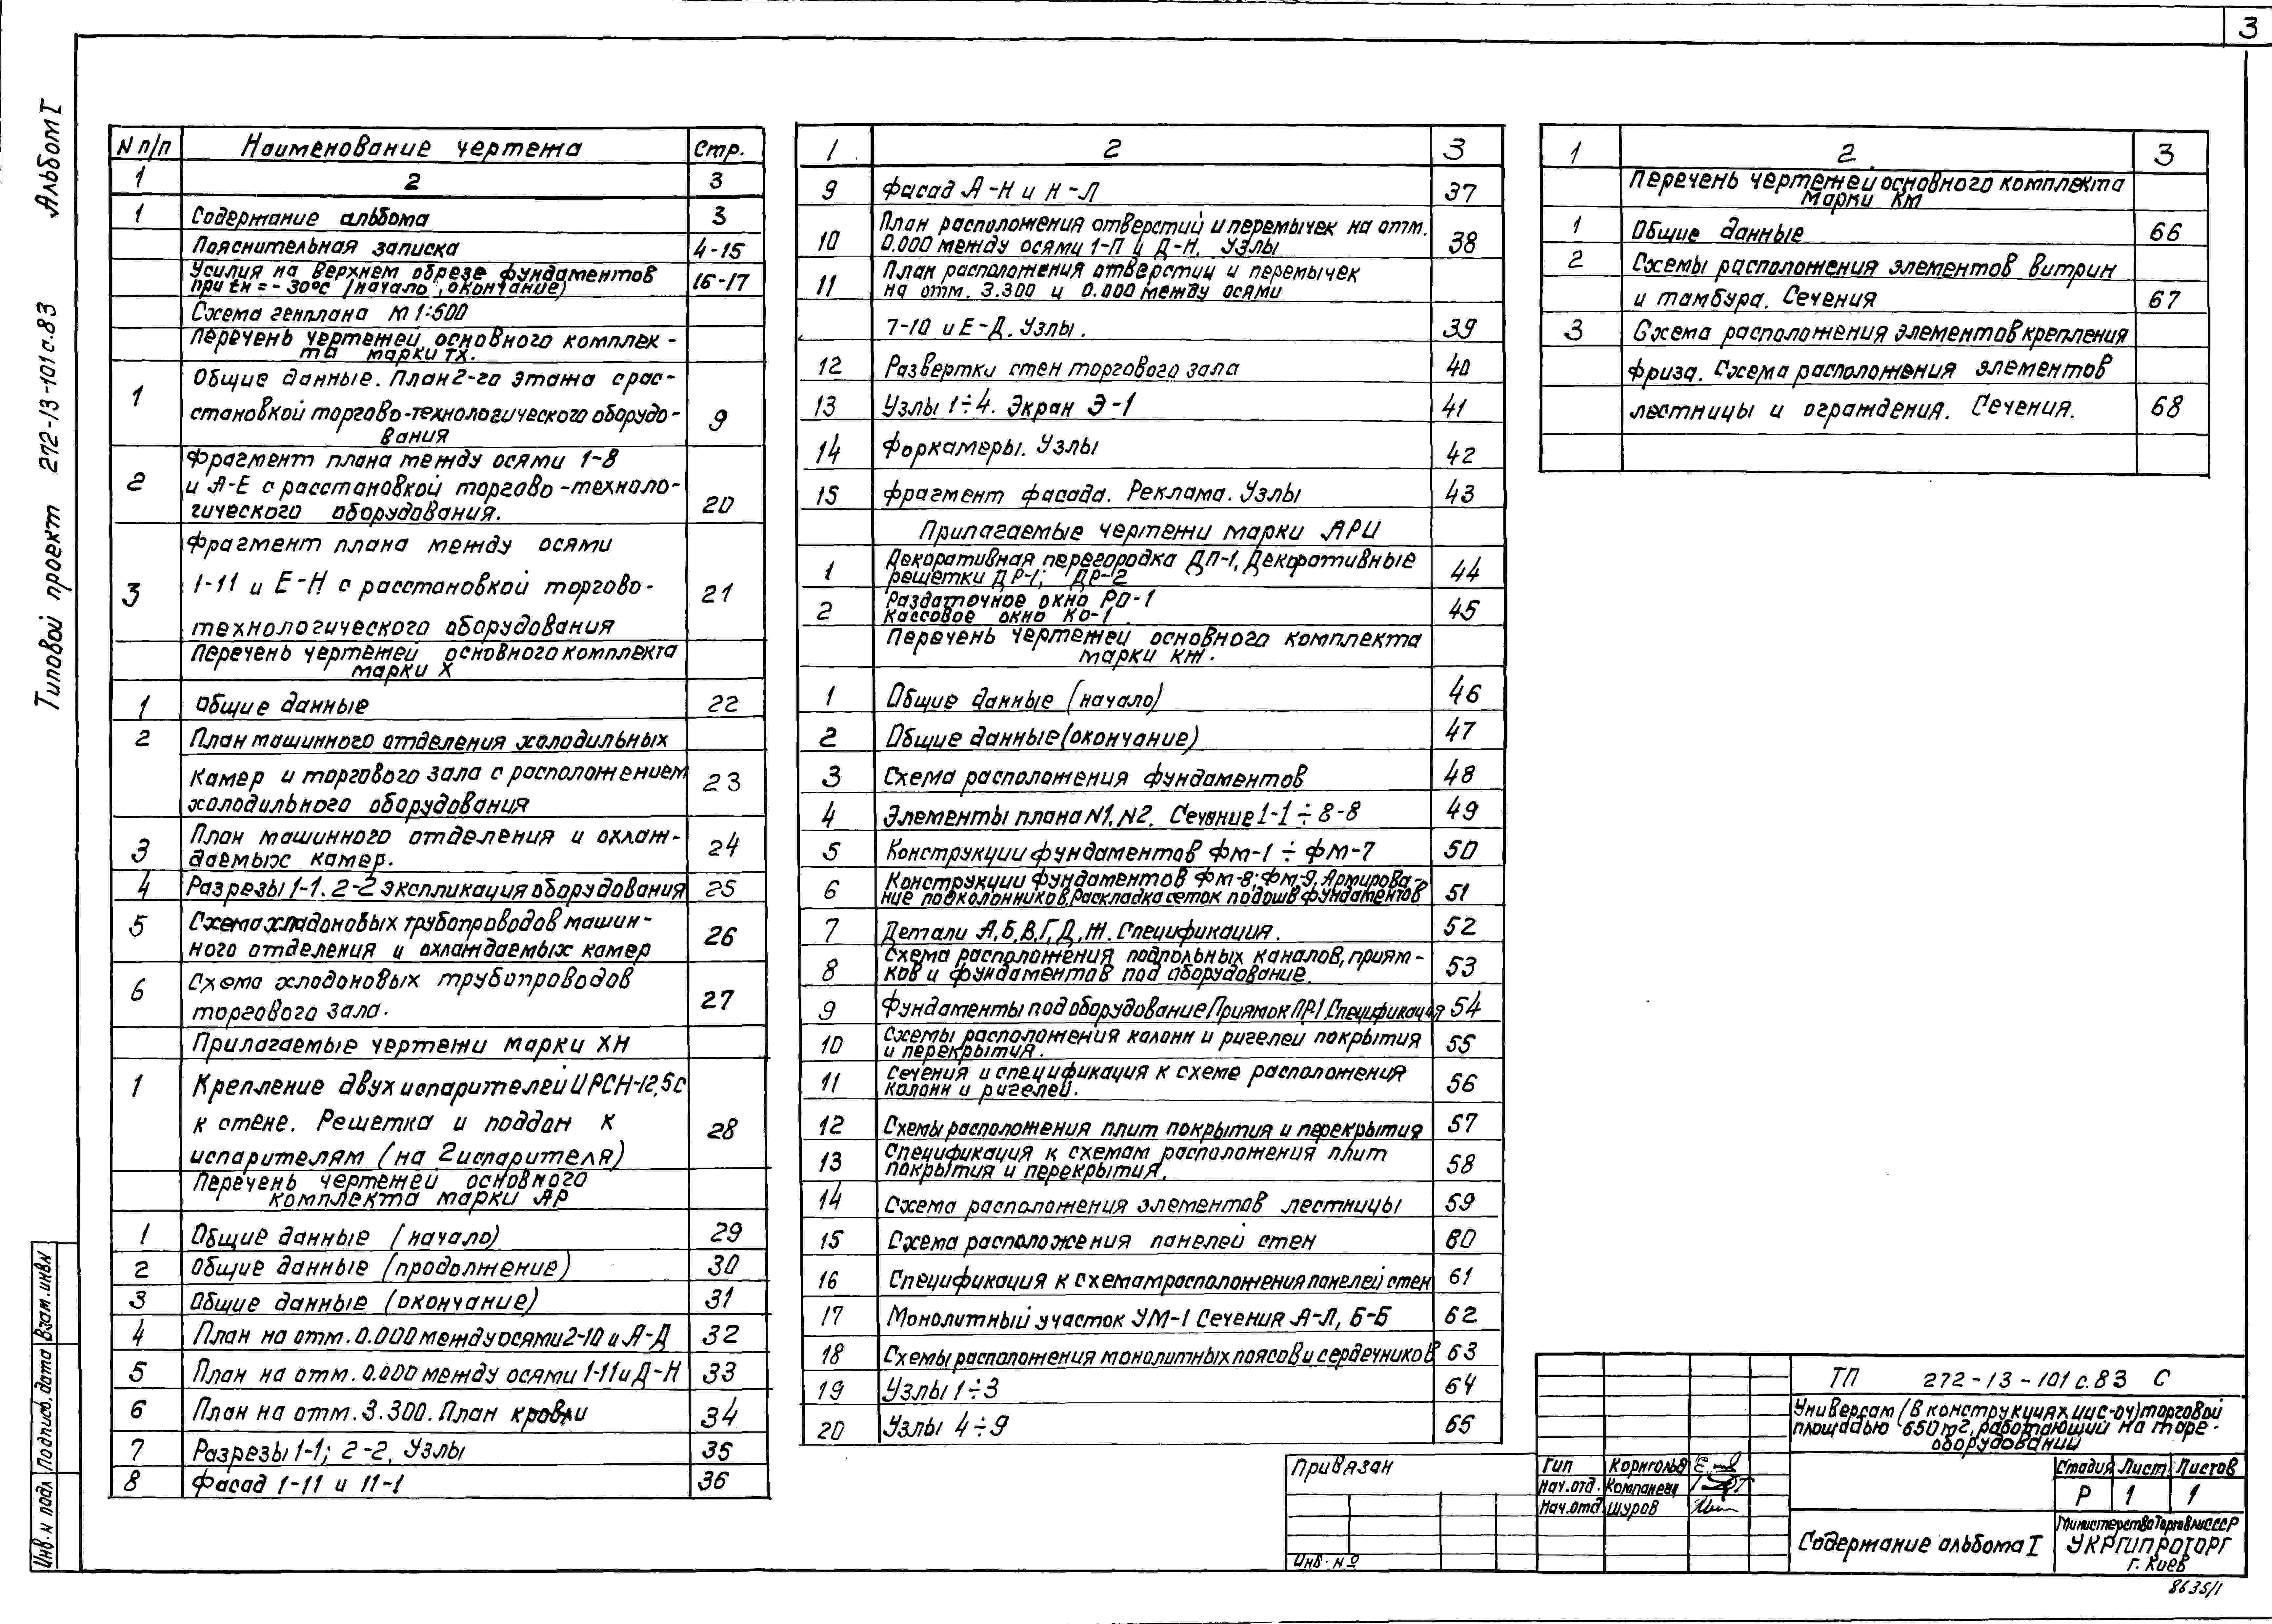 3
Альбом I
Типовой проект 272-13-101с.83
N п/п Наименование чертежа Стр.
1 2 3
1 Содержание альбома 3
Пояснительная записка 4-15
Усилия на верхнем обрезе фундаментов
при tн = -30°с (начало, окончание) 16-17
Схема генплана М 1:500
Перечень чертежей основного комплек-
та марки ТХ.
1 Общие данные. План 2-го этажа с рас-
становкой торгово-технологического оборудо- 9
вания
Фрагмент плана между осями 1-8
2 и А-Е с расстановкой торгово-техноло-
гического оборудования. 20
Фрагмент плана между осями
3 1-11 и Е-Н с расстановкой торгово- 21
технологического оборудования
Перечень чертежей основного комплекта
марки Х
1 Общие данные 22
2 План машинного отделения холодильных
камер и торгового зала с расположением 23
холодильного оборудования
План машинного отделения и охлаж- 24
3 даемых камер.
4 Разрезы 1-1. 2-2 экспликация оборудования 25
5 Схема хладоновых трубопроводов машин-
ного отделения и охлаждаемых камер 26
6 Схема хлодоновых трубопроводов
торгового зала. 27
Прилагаемые чертежи марки ХН
1 Крепление двух испарителей ИРСН-12,5с
к стене. Решетка и поддон к 28
испарителям (на 2 испарителя)
Перечень чертежей основного
комплекта марки АР
1 Общие данные (начало) 29
2 Общие данные (продолжение) 30
3 Общие данные (окончание) 31
4 План на отм. 0.000 между осями 2-10 и А-Д 32
5 План на отм. 0.000 между осями 1-11 и Д-Н 33
6 План на отм. 3.300. План кровли 34
7 Разрезы 1-1; 2-2, Узлы 35
8 Фасад 1-11 и 11-1 36
1 2 3
9 Фасад А-Н и Н-Л 37
План расположения отверстий и перемычек на отм.
10 0.000 между осями 1-П и Д-Н. Узлы 38
План расположения отверстий и перемычек
11 на отм. 3.300 и 0.000 между осями
7-10 и Е-Д. Узлы. 39
12 Развертки стен торгового зала 40
13 Узлы 1÷4. Экран Э-1 41
14 Форкамеры. Узлы 42
15 Фрагмент фасада. Реклама. Узлы 43
Прилагаемые чертежи марки АРИ
1 Декоративная перегородка ДП-1, Декоративные
решетки ДР-1; ДР-2 44
Раздаточное окно РО-1
2 Кассовое окно КО-1 45
Перечень чертежей основного комплекта
марки КЖ.
1 Общие данные (начало) 46
2 Общие данные (окончание) 47
3 Схема расположения фундаментов 48
4 Элементы плана N1, N2. Сечение 1-1 ÷ 8-8 49
5 Конструкции фундаментов ФМ-1 ÷ ФМ-7 50
Конструкции фундаментов ФМ-8; ФМ-9, Армирова-
6 ние подколонников, Раскладка сеток подошв фундаментов 51
7 Детали А, Б, В, Г, Д, Ж. Спецификация. 52
Схема расположения подпольных каналов, прият-
8 ков и фундаментов под оборудование. 53
9 Фундаменты под оборудование Приямок ПР-1. Спецификация 54
10 Схемы расположения колонн и ригелей покрытия
и перекрытия. 55
11 Сечения и спецификация к схеме расположения
колонн и ригелей. 56
12 Схемы расположения плит покрытия и перекрытия 57
13 Спецификация к схемам расположения плит
покрытия и перекрытия. 58
14 Схема расположения элементов лестницы 59
15 Схема расположения панелей стен 80
16 Спецификация к схемам расположения панелей стен 61
17 Монолитный участок УМ-1 Сечения А-Л, Б-Б 62
18 Схемы расположения монолитных поясов и сердечников 63
19 Узлы 1÷3 64
20 Узлы 4÷9 65
1 2 3
Перечень чертежей основного комплекта
марки КМ
1 Общие данные 66
2 Схемы расположения элементов витрин
и тамбура. Сечения 67
3 Схема расположения элементов крепления
фриза. Схема расположения элементов
лестницы и ограждения. Сечения. 68
ТП 272-13-101 с.83 С
Универсам (в конструкциях ИИС-04) торговой
площадью 650 м2, работающий на таре-
оборудовании
Привязан
Инв. №
Гип Корнгольд
Нач. отд. Компанеец
Нач. отд. Шуров
Стадия Лист Листов
Р 1 1
Содержание альбома I
Министерство Торговли СССР
УКРГИПРОТОРГ
г. Киев
8635/1
Инв. N подл Подпись, дата Взам. инв. N